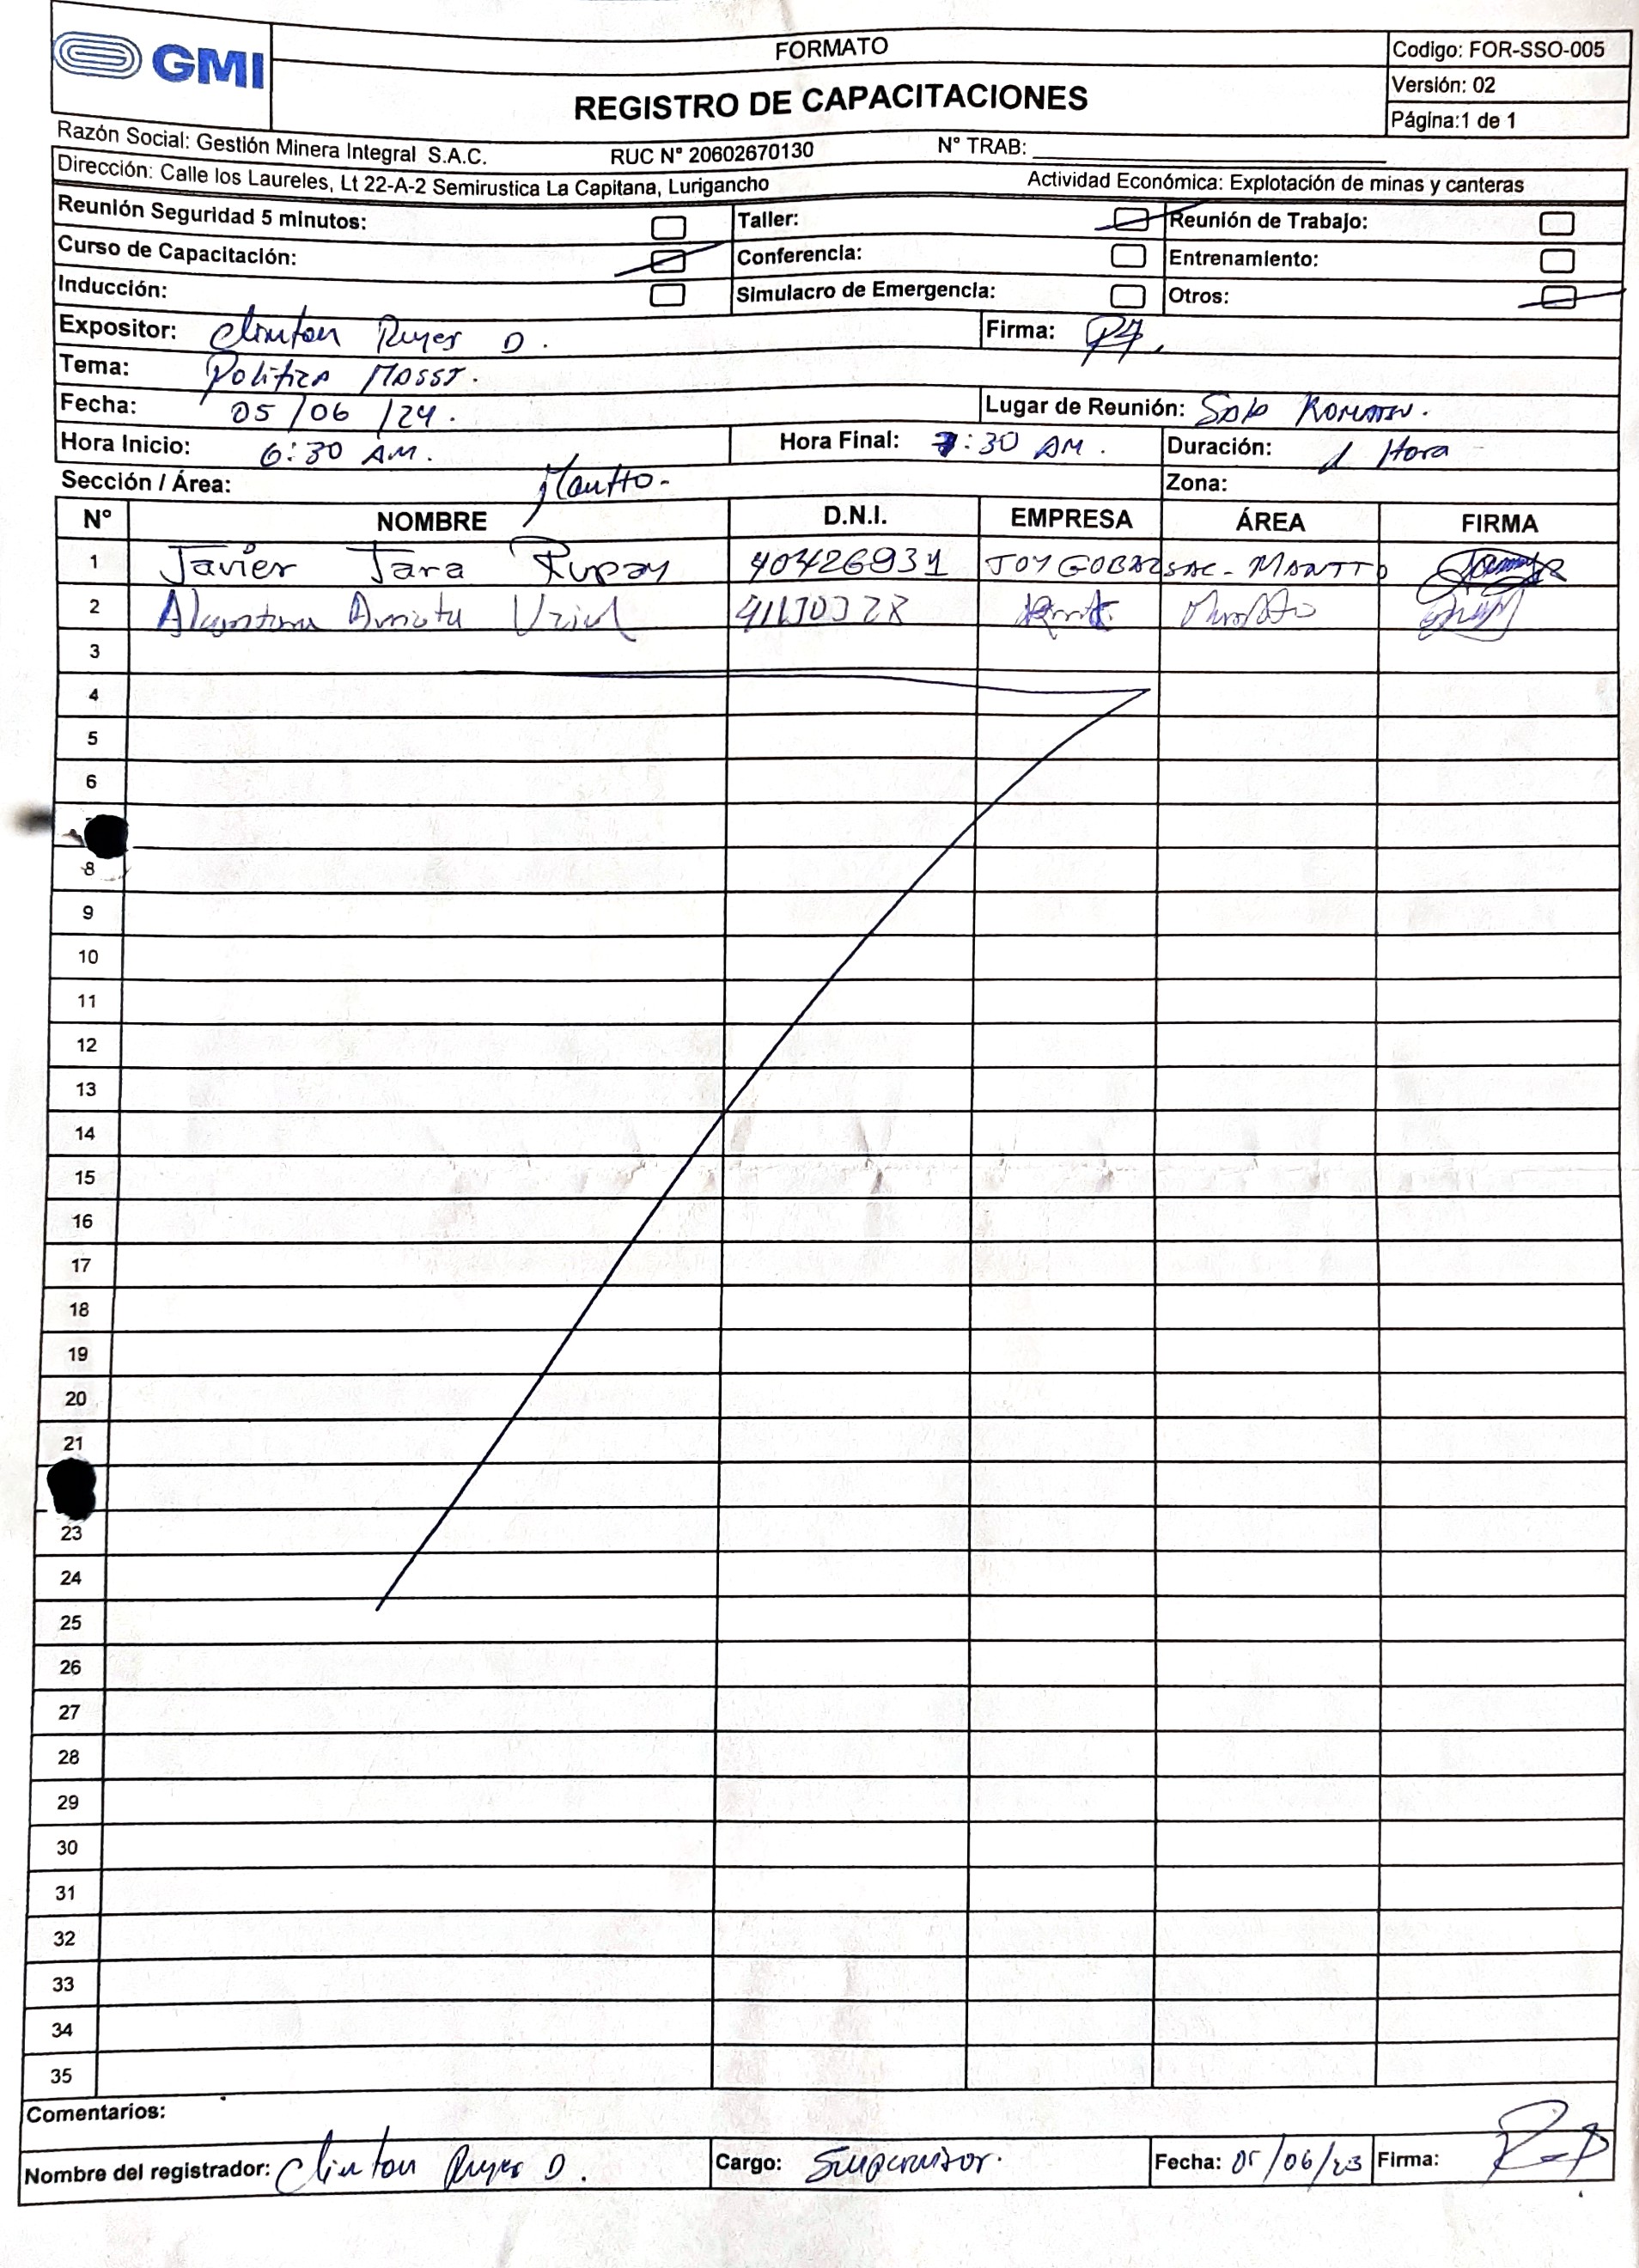 GMI
FORMATO
REGISTRO DE CAPACITACIONES
Codigo: FOR-SSO-005
Versión: 02
Página:1 de 1
Razón Social: Gestión Minera Integral S.A.C. RUC N° 20602670130 N° TRAB:
Dirección: Calle los Laureles, Lt 22-A-2 Semirustica La Capitana, Lurigancho Actividad Económica: Explotación de minas y canteras
Reunión Seguridad 5 minutos: Taller: Reunión de Trabajo:
Curso de Capacitación: Conferencia: Entrenamiento:
Inducción: Simulacro de Emergencia: Otros:
Expositor: Clinton D. Firma:
Tema: Politica
Fecha: 05/06/24. Lugar de Reunión:
Hora Inicio: 6:30 AM. Hora Final: 7:30 AM. Duración: 1 Hora
Sección / Área: Mantto- Zona:
N° NOMBRE D.N.I. EMPRESA ÁREA FIRMA
1 Javier Jara Rupay 40426931 MANTTO
2
3
4
5
6
8
9
10
11
12
13
14
15
16
17
18
19
20
21
23
24
25
26
27
28
29
30
31
32
33
34
35
Comentarios:
Nombre del registrador: Clinton D. Cargo: Supervisor. Fecha: 05/06/23 Firma: